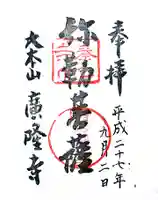 奉拝
平成二十七年
九月二日
弥勒菩薩
太秦山
廣隆寺